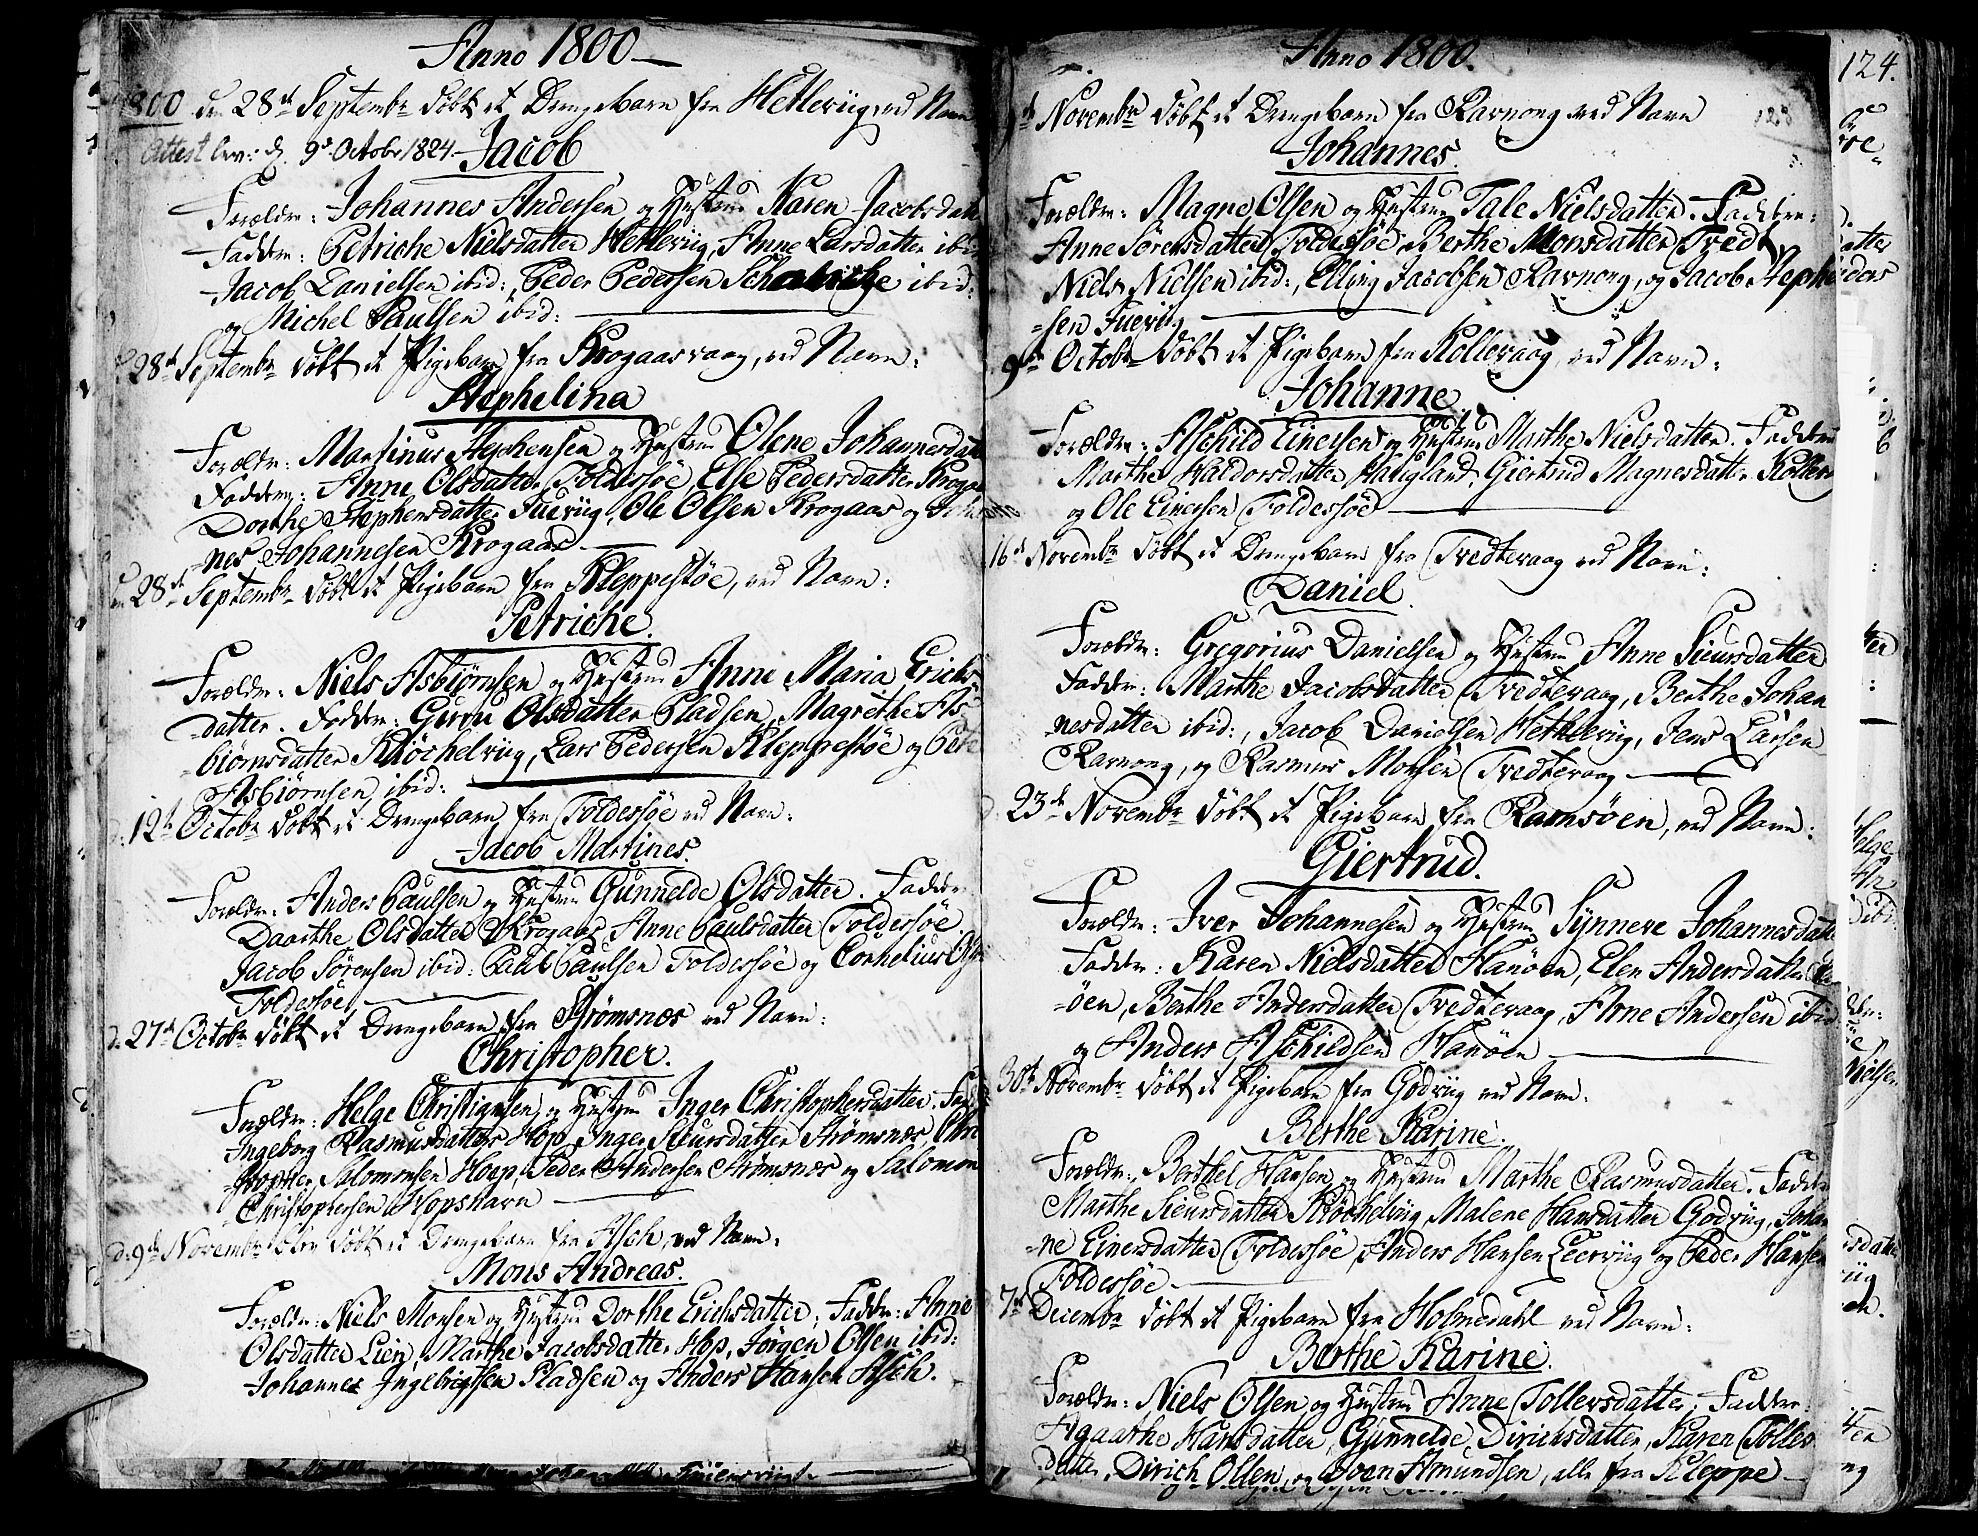 Anno 1800
1800 den 28de Septembr døbt et Drengebarn fra Hetleviig, ved Navn
Attest lev: d. 9de Octobr 1824 Jacob
Forældre: Johannes Andersen og Hustrue Karen Jacobsdatt
Faddre: Petriche Nielsdatter Hetleviig, Anne Larsdatter ibid
Jacob Danielsen ibid:, Peder Pedersen ibid:
og Michel Paulsen ibid:
d. 28de Septembr døbt et Pigebarn fra Krogaasvaag, ved Navn:
Stephelina
Forældre: Martinus Stephensen og Hustrue Olene Johannesdatt
Faddre: Anne Olsdatter Foldersøe, Else Pedersdatter Krogaas
Dorthe Stephensdatter Juviig, Ole Olsen Krogaas og Johan
nes Johannesen Krogaas
den 28de Septembr døbt et Pigebarn fra Kleppestøe, ved Navn:
Petriche
Forældre: Niels Asbiørnsen og Hustrue Anne Maria Erichs-
-datter. Faddre: Guru Olsdatter Pladsen, Magrethe As-
-biørnsdatter Kløchelviig, Lars Pedersen Kleppestøe og Peter
Asbiørnsen, ibid:
d. 12te Octobr døbt et Drengebarn fra Foldersøe ved Navn:
Jacob Martines
Forældre: Anders Paulsen og Hustrue Gunnelde Olsdatter. Faddre
Daarthe Olsdatter Krogaas, Anne Paulsdatter Foldersøe
Jacob Sørensen ibid: Paul Paulsen Foldersøe og Cornelius Ols
Foldersøe
d. 27de Octobr døbt et Drengebarn fra Strømsnæs ved Navn:
Christopher.
Forældre: Helge Christiansen og Hustrue Inger Christophersdatter. Fad
Ingeborg Rasmusdatter Hop, Inger Sieursdatter Strømsnæs, Chri
stopher Salomonsen Hoep, Peder Andersen Strømsnæs og Salomon
Christophersen Hopshavn
d. 9de Novembr døbt et Drengebarn fra Asch, ved Navn:
Mons Andreas.
Forældre: Niels Monsen og Hustrue Dorthe Erichsdatter, Faddre: Anne
Olsdatter Lien, Marthe Jacobsdatter Hop, Jørgen Olsen ibid:
Johannes Ingebrigtsen Pladsen og Anders Hansen Asch.
Anno 1800.
124.
123
9de Novembr døbt et Drengebarn fra Ravnong ved Navn
Johannes.
Forældre: Magne Olsen og Hustrue Tale Nielsdatter. Faddre:
Anne Sørensdatter Foldersøe, Berthe Monsdatter Tvedt,
Niels Nielsen ibid:, Elling Jacobsen Ravnong, og Jacob Stephen
-sen Juviig
9de Octobr døbt et Pigebarn fra Kollevaag, ved Navn:
Johanne
Forældre: Aschild Einersen og Hustrue Marthe Nielsdatter. Faddre
Marthe Haldorsdatter Haugland, Giertrud Magnesdattr Kollev
og Ole Einersen Foldersøe
16de Novembr døbt et Drengebarn fra Tvedtevaag ved Navn:
Daniel.
Forældre: Gregorius Danielsen og Hustrue Anne Sieursdatter
Faddre: Marthe Jacobsdatter Tvedtevaag, Berthe Johan
-nesdatter ibid:, Jacob Danielsen Hetleviig, Jens Larsen
Ravnong, og Rasmus Monsen Tvedtevaag
d. 23de Novembr døbt et Pigebarn fra Ramsøen, ved Navn:
Giertrud.
Forældre: Iver Johannesen og Hustrue Synneve Johannesdatt
Faddre: Karen Nielsdatter Hanøen, Elen Andersdatter Ha
-øen, Berthe Andersdatter Tvedtevaag, Arne Andersen ibid
og Anders Aschildsen Hanøen
30te Novembr døbt et Pigebarn fra Godviig ved Navn:
Berthe Karine.
Forældre: Berthel Hansen og Hustrue Marthe Rasmusdatter. Faddre
Marthe Sieursdatter Kløchelviig, Malene Hansdatter Godviig, Johan
-ne Einersdatter Foldersøe, Anders Hansen Leerviig og Peder Hansen
Foldersøe
7de Decembr døbt et Pigebarn fra Holmedahl ved Navn:
Berthe Karine.
Forældre: Niels Olsen og Hustrue Anne Tollevsdatter, Faddre:
Agaathe Hansdatter, Gunnelde Dirichsdatter, Karen Tollevs
datter, Dirich Olsen, og Sven Amundsen, alle fra Kleppe